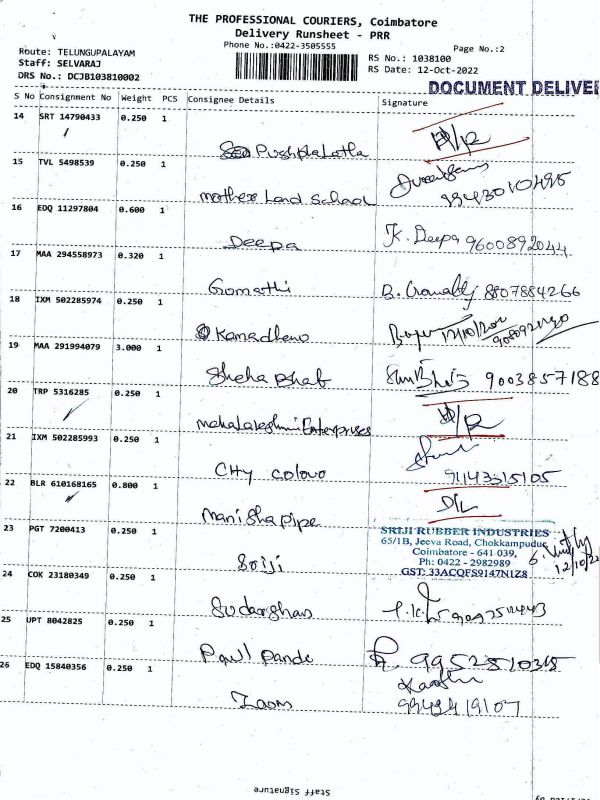 THE PROFESSIONAL COURIERS, Coimbatore
Delivery Runsheet - PRR
Phone No.:0422-3505555
Page No.:2
Route: TELUNGUPALAYAM
Staff: SELVARAJ
DRS No.: DCJB103810002
RS No.: 1038100
RS Date: 12-Oct-2022
DOCUMENT DELIVE
S No Consignment No Weight PCS Consignee Details Signature
14 SRT 14790433 0.250 1
Pushpalatha
15 TVL 5498539 0.250 1
Mother Land School
9943010495
16 EDQ 11297804 0.600 1
Deepa K. Deepa 9600892044
17 MAA 294558973 0.320 1
Gomathi B. 8807884266
18 IXM 502285974 0.250 1
Kamadhenu
19 MAA 291994079 3.000 1
Sneha Bhat 9003857188
20 TRP 5316285 0.250 1
Mahalakshmi Enterprises
21 IXM 502285993 0.250 1
City
22 BLR 610168165 0.800 1
D/L
Manisha pipe
23 PGT 7200413 0.250 1
SRIJI RUBBER INDUSTRIES
65/1B, Jeeva Road, Chokkampudur,
Coimbatore - 641 039,
Ph: 0422 - 2982989
GST: 33ACQFS9147N1Z8
12/10/22
Sriji
24 COK 23180349 0.250 1
Sudarshan
25 UPT 8042825 0.250 1
Paul Pandi 9952510315
26 EDQ 15840356 0.250 1
Zoom
Staff Signature